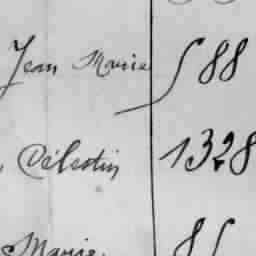 Jean Marie 588
Célestin 1328
Marie